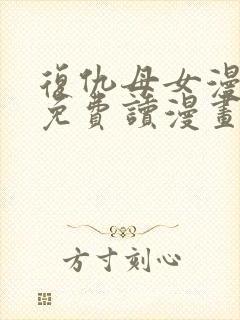 復仇母女漫
免費讀漫畫
方寸刻心